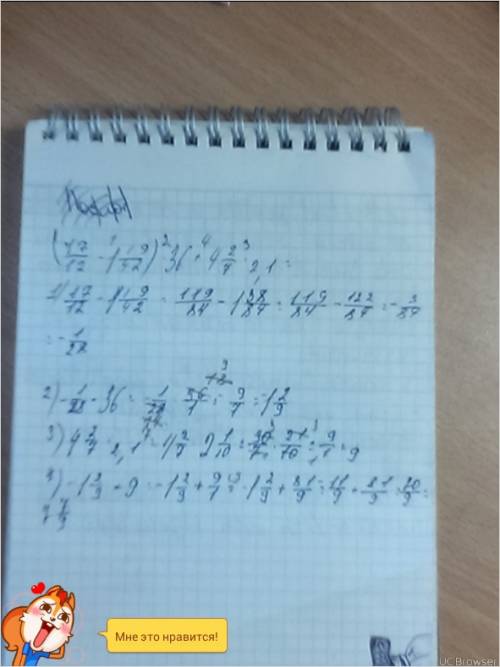 (17/12 - 1 19/42) · 36 + 4 2/7 · 2,1 =
1) 17/12 - 1 19/42 = 119/84 - 1 38/84 = 119/84 - 122/84 = - 3/84
= - 1/28
2) - 1/28 · 36 = - 1/28 · 36/1 = 9/7 = 1 2/9
3) 4 2/7 · 2,1 = 4 2/7 · 2 1/10 = 30/7 · 21/10 = 9/1 = 9
4) - 1 2/9 + 9 = - 1 2/9 + 9/1 = - 1 2/9 + 81/9 = 11/9 + 81/9 = 70/9 =
7 7/9
Мне это нравится!
UC Browser